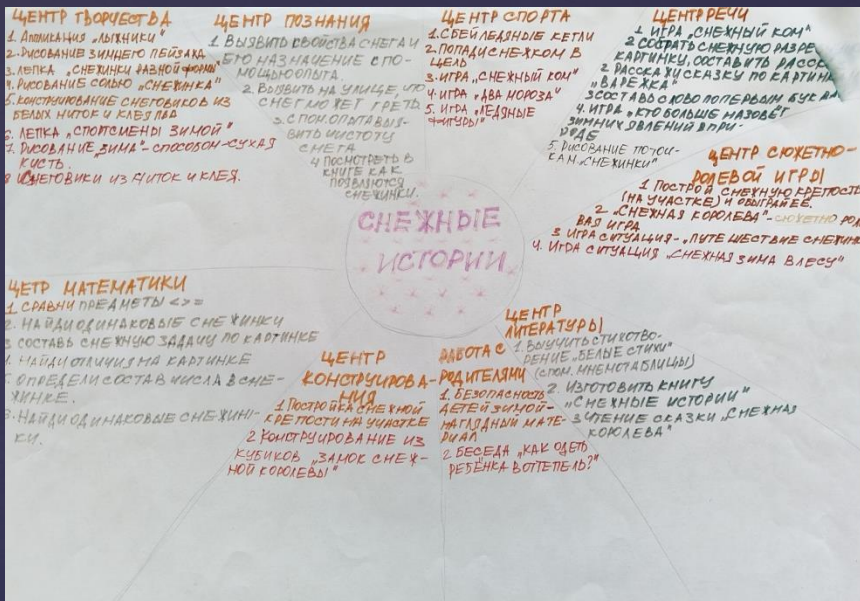 ЦЕНТР ТВОРЧЕСТВА
1. Аппликация „Лыжники"
2. Рисование зимнего пейзажа
3. Лепка „Снежинки разной формы"
4. Рисование солью „Снежинка"
5. Конструирование снеговиков из
белых ниток и клея ПВА
6. Лепка „Спортсмены зимой"
7. Рисование „Зима" - способом - сухая
кисть.
8 Снеговики из ниток и клея.
ЦЕНТР ПОЗНАНИЯ
1. Выявить свойства снега и
его назначение с по-
мощью опыта.
2. Выявить на улице, что
снег может греть
3. С пом. опыта выя-
вить чистоту
снега
4 Посмотреть в
книге как
появляются
снежинки.
ЦЕНТР СПОРТА
1. Сбей ледяные кегли
2. Попади снежком в
цель
3. Игра „Снежный ком"
4. Игра „Два мороза"
5. Игра „Ледяные
фигуры"
ЦЕНТР РЕЧИ
1 Игра „Снежный ком"
2 Собрать снежную разре
картинку, составить расск
2 Расскажи сказку по картин
„Варежка"
3 Составь слово по первым букв
4. Игра „Кто больше назовёт
зимних явлений в при-
роде
5. Рисование по точ-
кам „Снежинки"
ЦЕНТР СЮЖЕТНО-
РОЛЕВОЙ ИГРЫ
1 Построй снежную крепость
(на участке) и обыграй её.
2 „Снежная королева" - сюжетно рол
вая игра
3 Игра ситуация - „Путешествие снежин
4. Игра ситуация „Снежная зима в лесу"
СНЕЖНЫЕ
ИСТОРИИ
ЦЕТР МАТЕМАТИКИ
1. Сравни предметы < > =
2. Найди одинаковые снежинки
3 Составь снежную задачу по картинке
Найди отличия на картинке
Определи состав числа в сне-
жинке.
Найди одинаковые снежин-
ки.
ЦЕНТР
КОНСТРУИРОВА-
НИЯ
1 Постройка снежной
крепости на участке
2 Конструирование из
кубиков „Замок снеж-
ной королевы"
РАБОТА С
РОДИТЕЛЯМИ
1. Безопасность
детей зимой -
наглядный мате-
риал
2 Беседа „Как одеть
ребёнка в оттепель?"
ЦЕНТР
ЛИТЕРАТУРЫ
1. Выучить стихотво-
рение „Белые стихи"
(с пом. мнемотаблицы)
2. Изготовить книгу
„Снежные истории"
3 Чтение сказки „Снежная
королева"